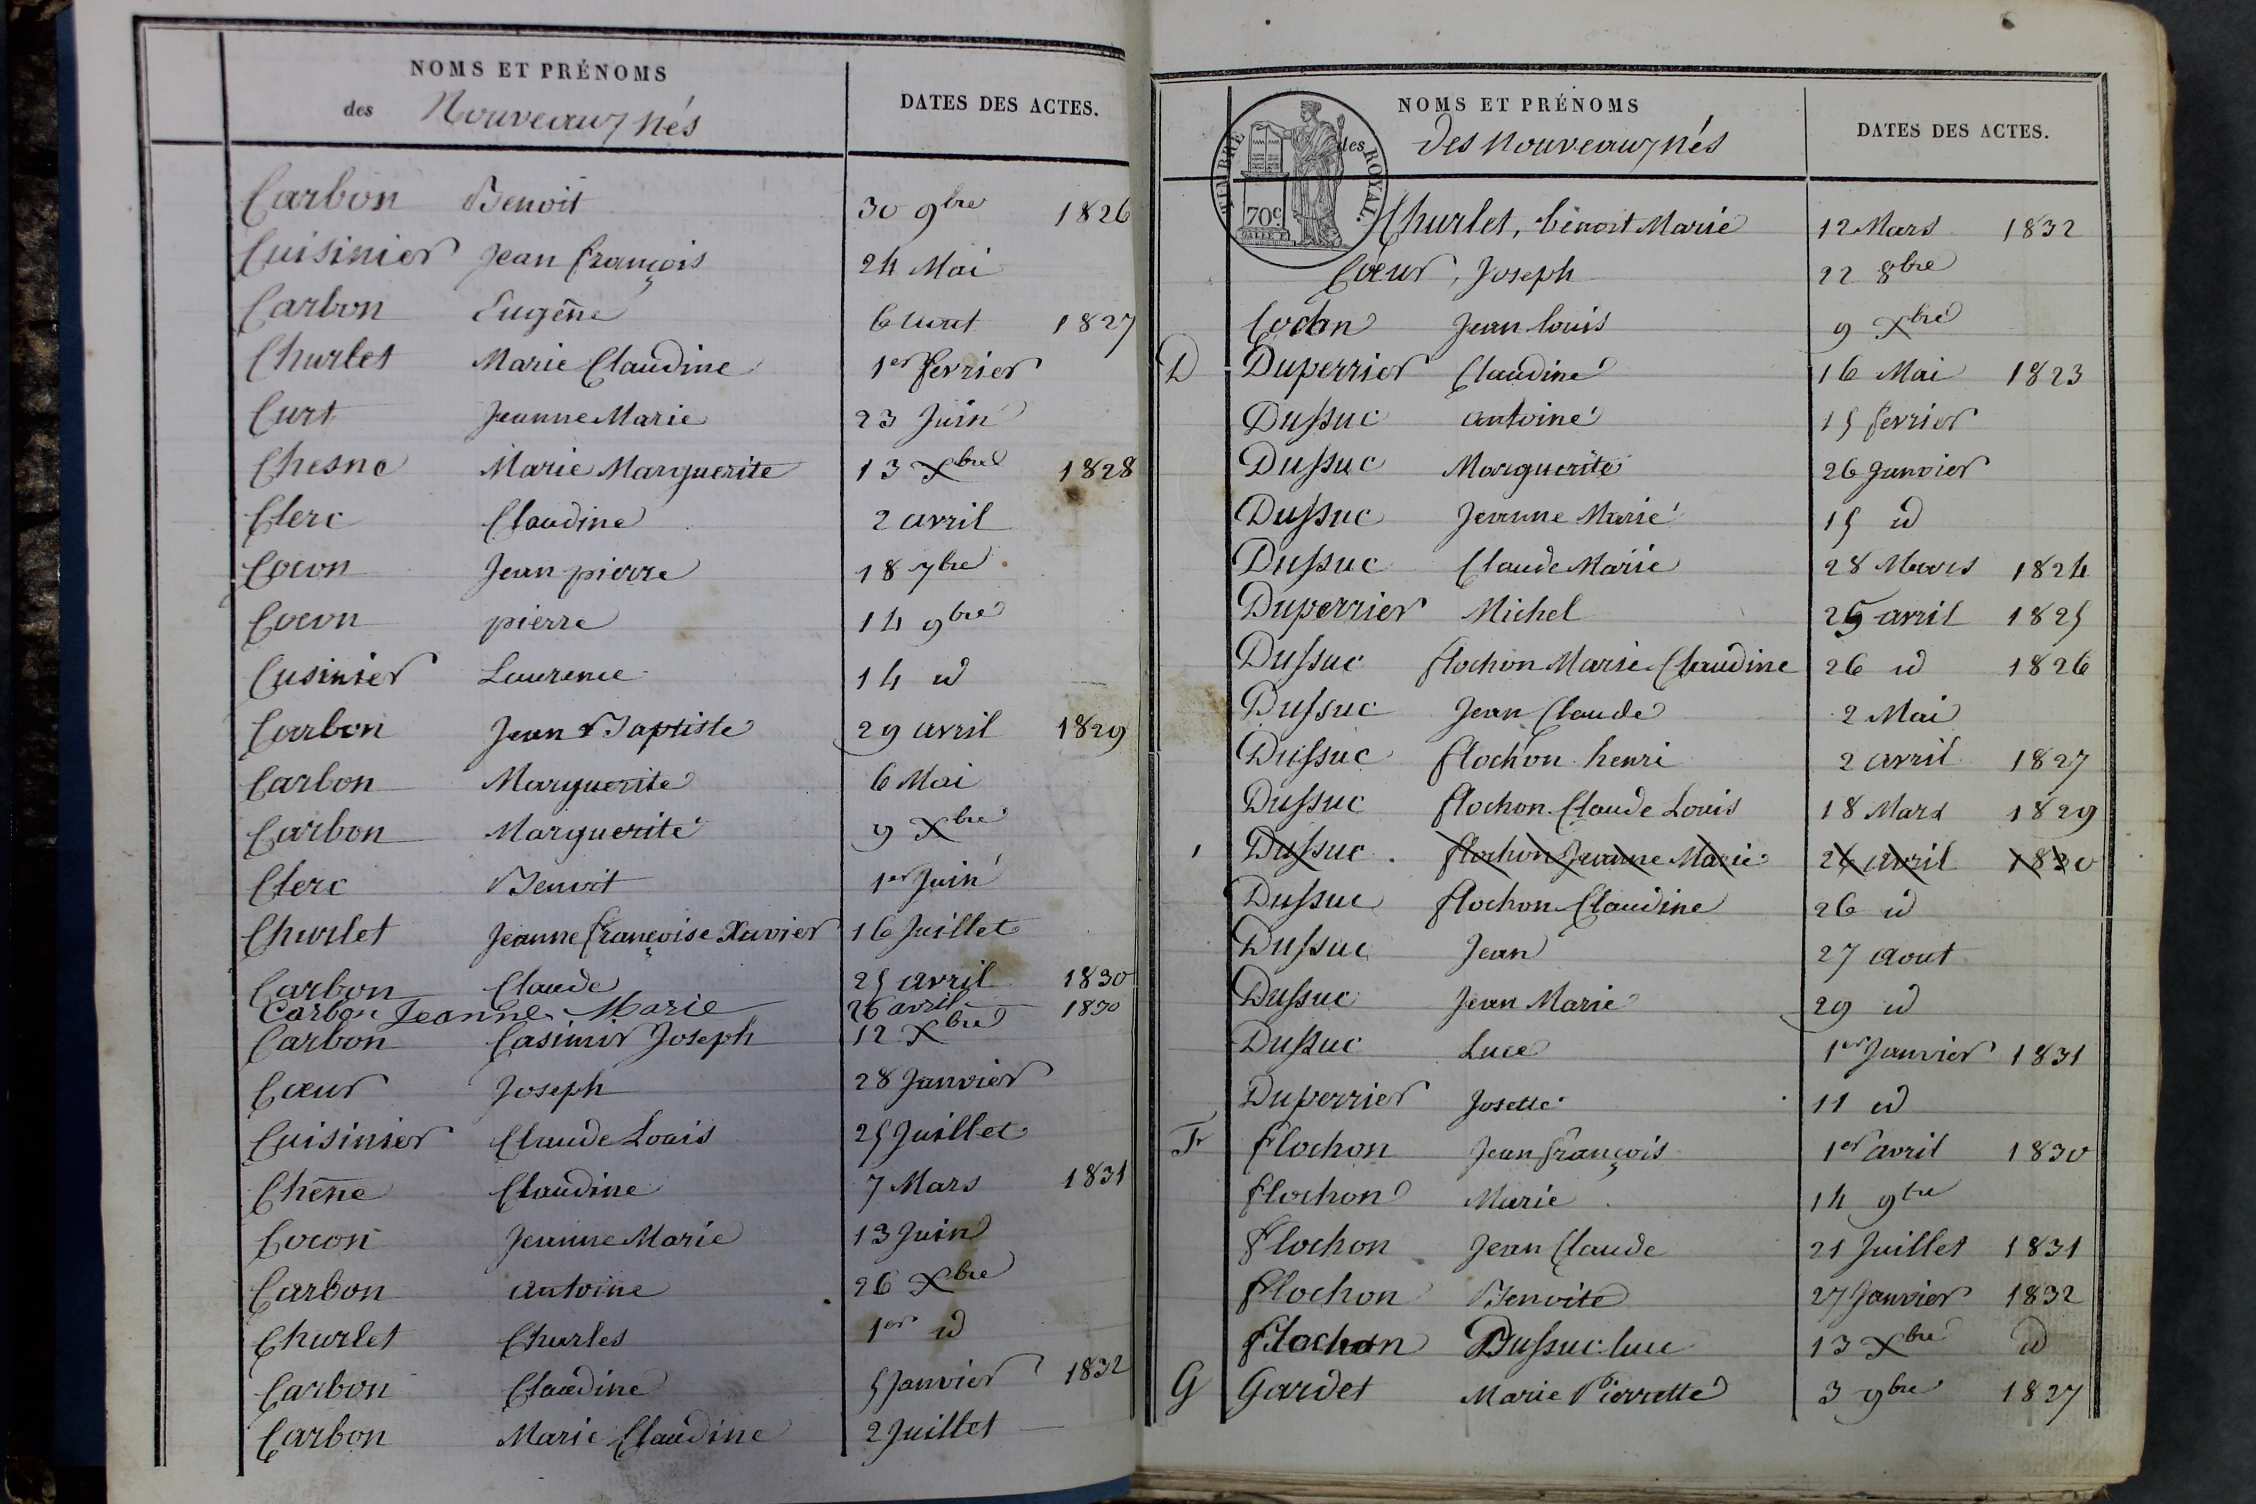 NOMS ET PRÉNOMS
des Nouveaux nés
DATES DES ACTES.
Carbon Benoit 30 9bre 1826
Cuisinier Jean François 24 Mai
Carbon Eugêne 6 Aout 1827
Churlet Marie Claudine 1er fevrier
Curt Jeanne Marie 23 Juin
Chesne Marie Marguerite 13 Xbre 1828
Clerc Claudine 2 avril
Cocon Jean pierre 18 7bre
Cocon pierre 14 9bre
Cusinier Laurence 14 id
Carbon Jean Baptiste 29 avril 1829
Carbon Marguerite 6 Mai
Carbon Marguerite 9 Xbre
Clerc Benoit 1er Juin
Churlet Jeanne françoise Xavier 16 Juillet
Carbon Claude 25 avril 1830
Carbon Jeanne Marie 26 avril 1830
Carbon Casimir Joseph 12 Xbre
Cœur Joseph 28 Janvier
Cuisinier Claude Louis 25 Juillet
Chêne Claudine 7 Mars 1831
Cocon Jeanne Marie 13 Juin
Carbon antoine 26 Xbre
Churlet Churles 1er id
Carbon Claudine 5 Janvier 1832
Carbon Marie Claudine 2 Juillet
NOMS ET PRÉNOMS
des nouveaux nés
DATES DES ACTES.
TIMBRE ROYAL.
70c
Churlet, benoit Marie 12 Mars 1832
Cœur, Joseph 22 8bre
Jean louis 9 Xbre
D Duperrier Claudine 16 Mai 1823
Dussuc antoine 15 fevrier
Dussuc Marguerite 26 Janvier
Dussuc Jeanne Marie 15 id
Dussuc Claude Marie 28 Mars 1824
Duperrier Michel 25 avril 1825
Dussuc flochon Marie Claudine 26 id 1826
Dussuc Jean Claude 2 Mai
Dussuc flochon henri 2 avril 1827
Dussuc flochon Claude Louis 18 Mars 1829
Dussuc flochon Jeanne Marie 26 avril 1830
Dussuc flochon Claudine 26 id
Dussuc Jean 27 aout
Dussuc Jean Marie 29 id
Dussuc Luce 1er Janvier 1831
Duperrier Josette 11 id
F flochon Jean françois 1er avril 1830
flochon Marie 14 9bre
flochon Jean Claude 21 Juillet 1831
flochon Benoite 27 Janvier 1832
flochon Dussuc luce 13 Xbre id
G Gardet Marie Pierrette 3 9bre 1827